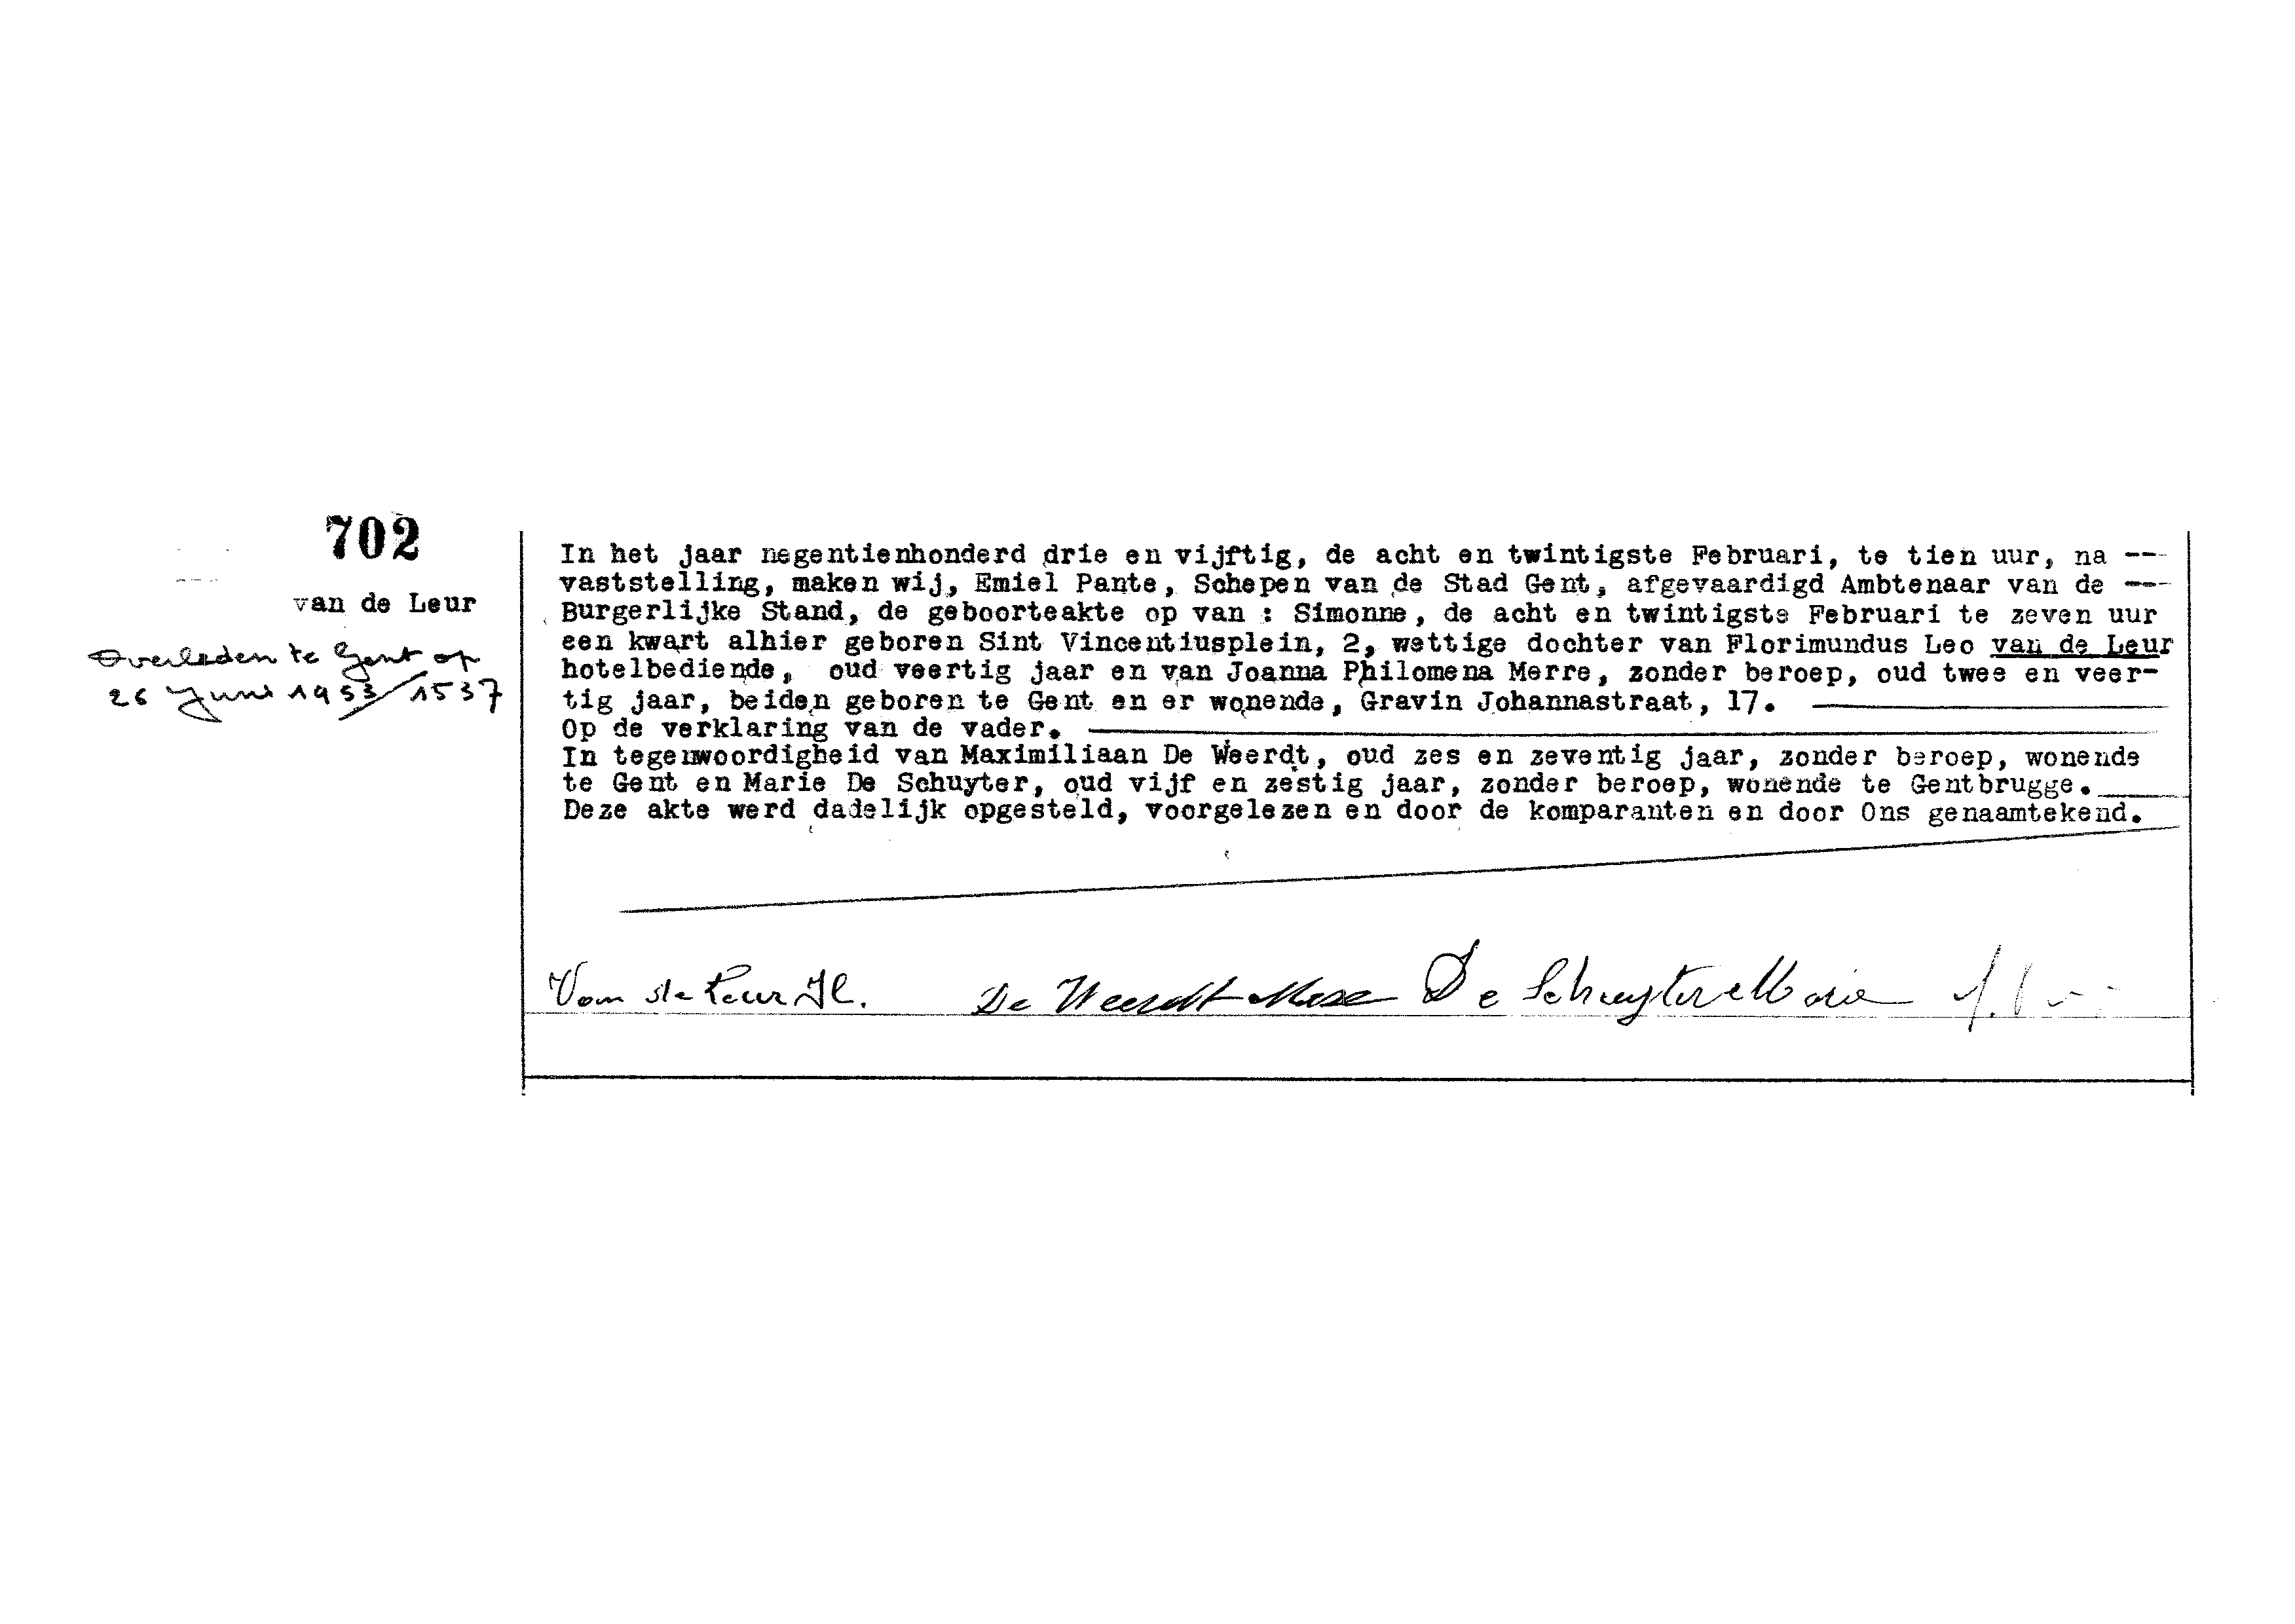 702
van de Leur
Overleden te Gent op
26 Juni 1953/1537
In het jaar negentienhonderd drie en vijftig, de acht en twintigste Februari, te tien uur, na ---
vaststelling, maken wij, Emiel Pante, Schepen van de Stad Gent, afgevaardigd Ambtenaar van de ---
Burgerlijke Stand, de geboorteakte op van : Simonne, de acht en twintigste Februari te zeven uur
een kwart alhier geboren Sint Vincentiusplein, 2, wettige dochter van Florimundus Leo van de Leur
hotelbediende, oud veertig jaar en van Joanna Philomena Merre, zonder beroep, oud twee en veer-
tig jaar, beiden geboren te Gent en er wonende, Gravin Johannastraat, 17.
Op de verklaring van de vader.
In tegenwoordigheid van Maximiliaan De Weerdt, oud zes en zeventig jaar, zonder beroep, wonende
te Gent en Marie De Schuyter, oud vijf en zestig jaar, zonder beroep, wonende te Gentbrugge.
Deze akte werd dadelijk opgesteld, voorgelezen en door de komparanten en door Ons genaamtekend.
Van de Leur Fl. De Weerdt Max De Schuyter Marie